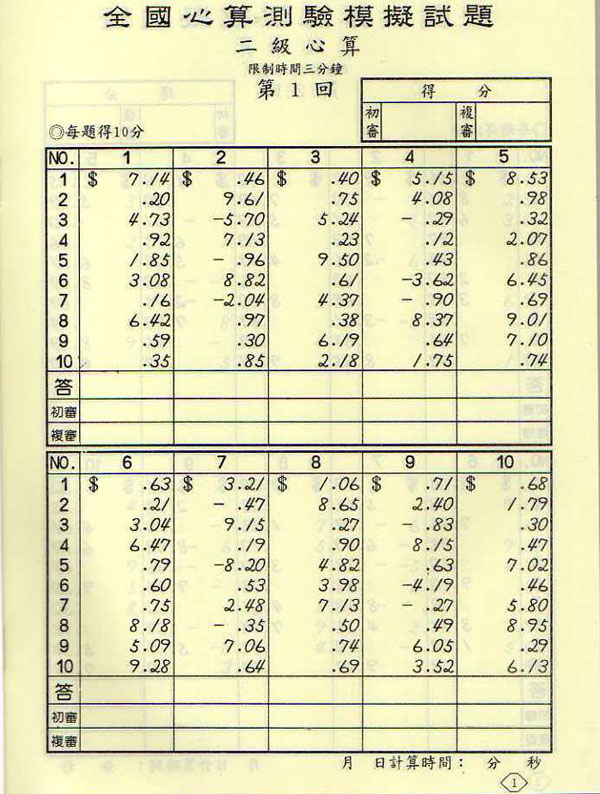 全國心算測驗模擬試題
二級心算
限制時間三分鐘
第1回
得 分
◎每題得10分 初審 複審
NO. 1 2 3 4 5
1 $ 7.14 $ .46 $ .40 $ 5.15 $ 8.53
2 .20 9.61 .75 4.08 .98
3 4.73 -5.70 5.24 - .29 .32
4 .92 7.13 .23 .12 2.07
5 1.85 - .96 9.50 .43 .86
6 3.08 8.82 .61 -3.62 6.45
7 .16 -2.04 4.37 - .90 .69
8 6.42 .97 .38 8.37 9.01
9 .59 .30 6.19 .64 7.10
10 .35 .85 2.18 1.75 .74
答
初審
複審
NO. 6 7 8 9 10
1 $ .63 $ 3.21 $ 1.06 $ .71 $ .68
2 .21 - .47 8.65 2.40 1.79
3 3.04 9.15 .27 - .83 .30
4 6.47 .19 .90 8.15 .47
5 .79 -8.20 4.82 .63 7.02
6 .60 .53 3.98 -4.19 .46
7 .75 2.48 7.13 - .27 5.80
8 8.18 - .35 .50 .49 8.95
9 5.09 7.06 .74 6.05 .29
10 9.28 .64 .69 3.52 6.13
答
初審
複審
月 日計算時間: 分 秒
1